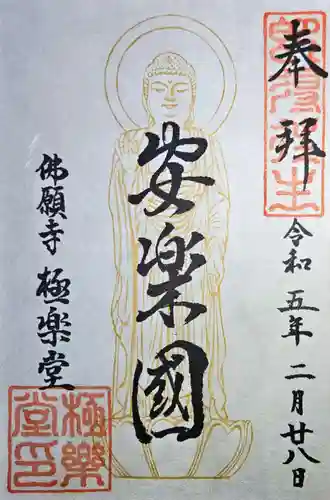 奉拝
令和五年二月廿八日
安樂國
佛願寺 極楽堂
極樂堂印